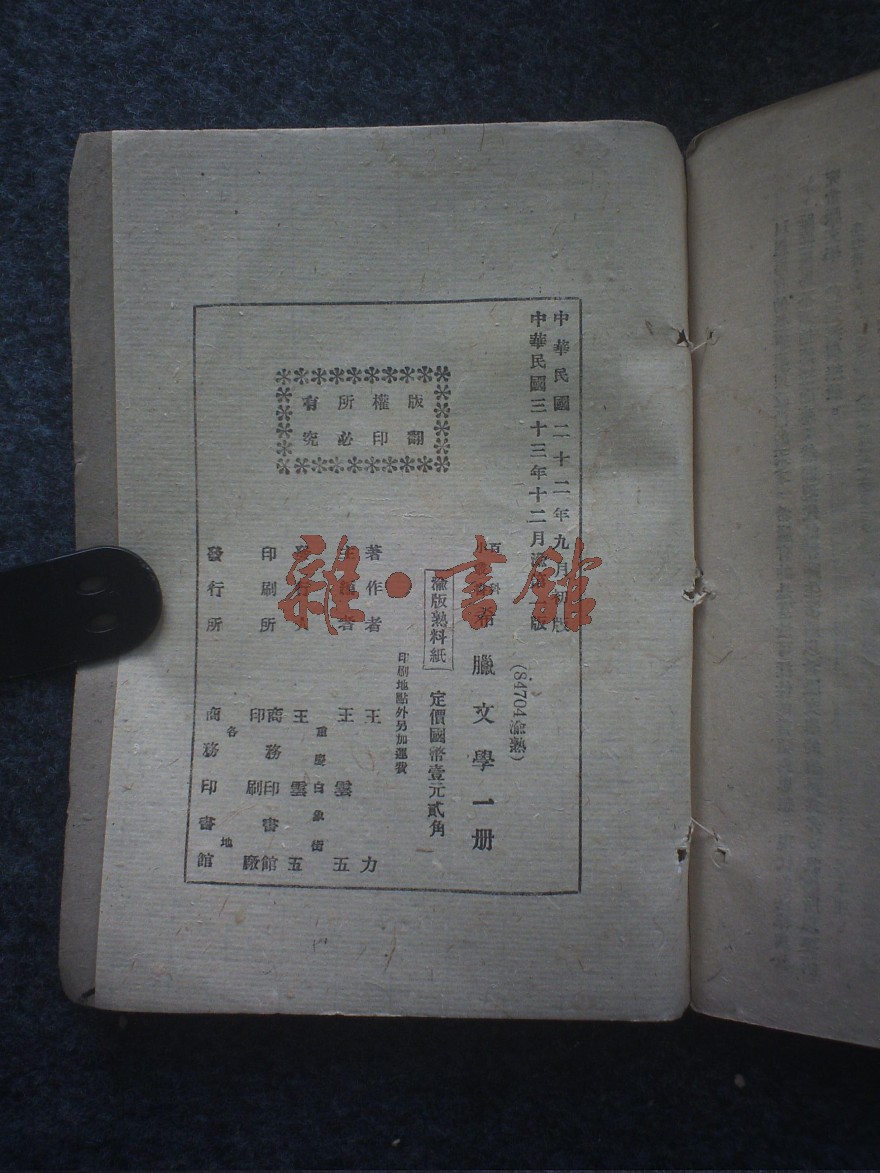 中華民國二十二年九月初版
中華民國三十三年十二月渝第一版
(84704渝熟)
百科
小叢書
希臘文學一册
渝版熟料紙
定價國幣壹元貳角
印刷地點外另加運費
版權所有
翻印必究
著作者 王力
主編者 王雲五
重慶白象街
發行人 王雲五
印刷所 商務印書館
印刷廠
各地
發行所 商務印書館
雜·書館